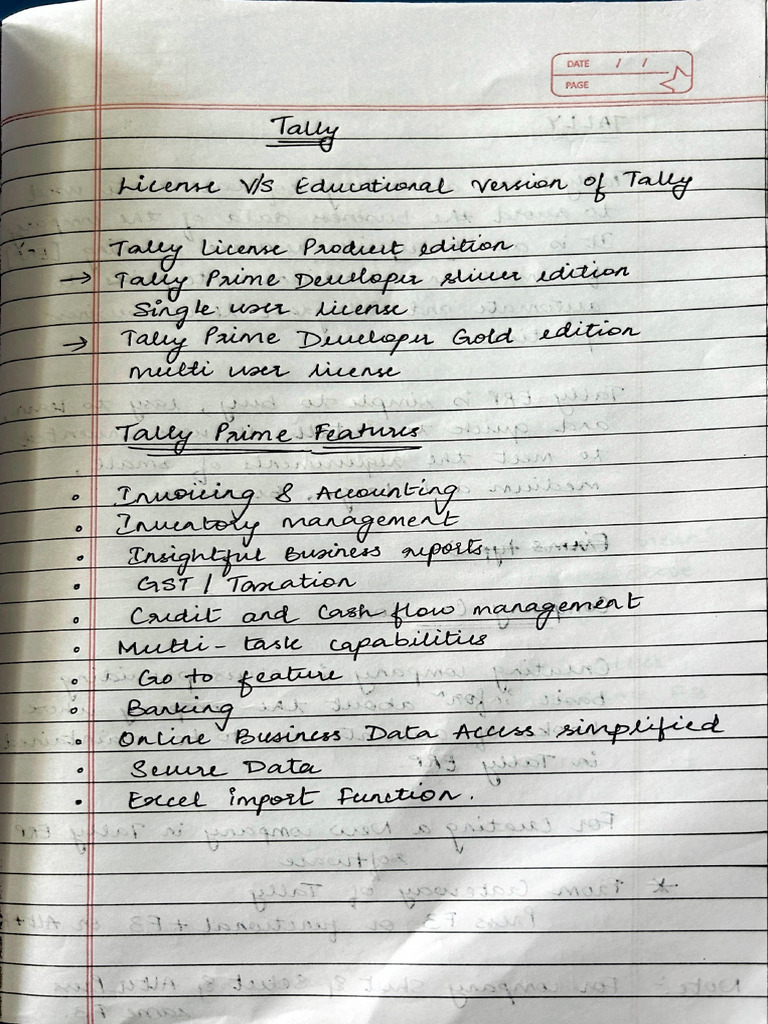 DATE / /
PAGE
Tally
License V/S Educational Version of Tally
Tally License Product edition
→ Tally Prime Developer sliver edition
Single user license
→ Tally Prime Developer Gold edition
multi user license
Tally Prime Features
• Invoicing & Accounting
• Inventory management
• Insightful Business reports
• GST / Taxation
• Credit and Cash flow management
• Multi-task capabilities
• Go to feature
• Banking
• Online Business Data Access simplified
• Secure Data
• Excel import Function.